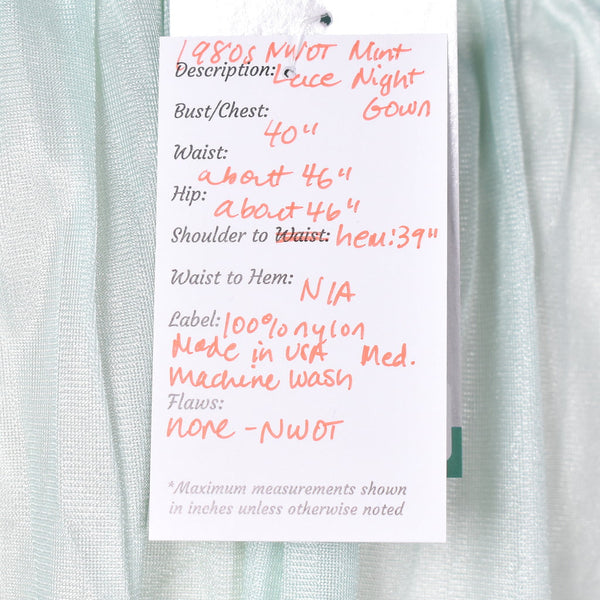 1980s NWOT Mint
Description: Lace Night
Gown
Bust/Chest:
40"
Waist:
about 46"
Hip:
about 46"
Shoulder to Waist: hem: 39"
Waist to Hem:
N/A
Label: 100% nylon
Made in USA Med.
Machine wash
Flaws:
none - NWOT
*Maximum measurements shown
in inches unless otherwise noted